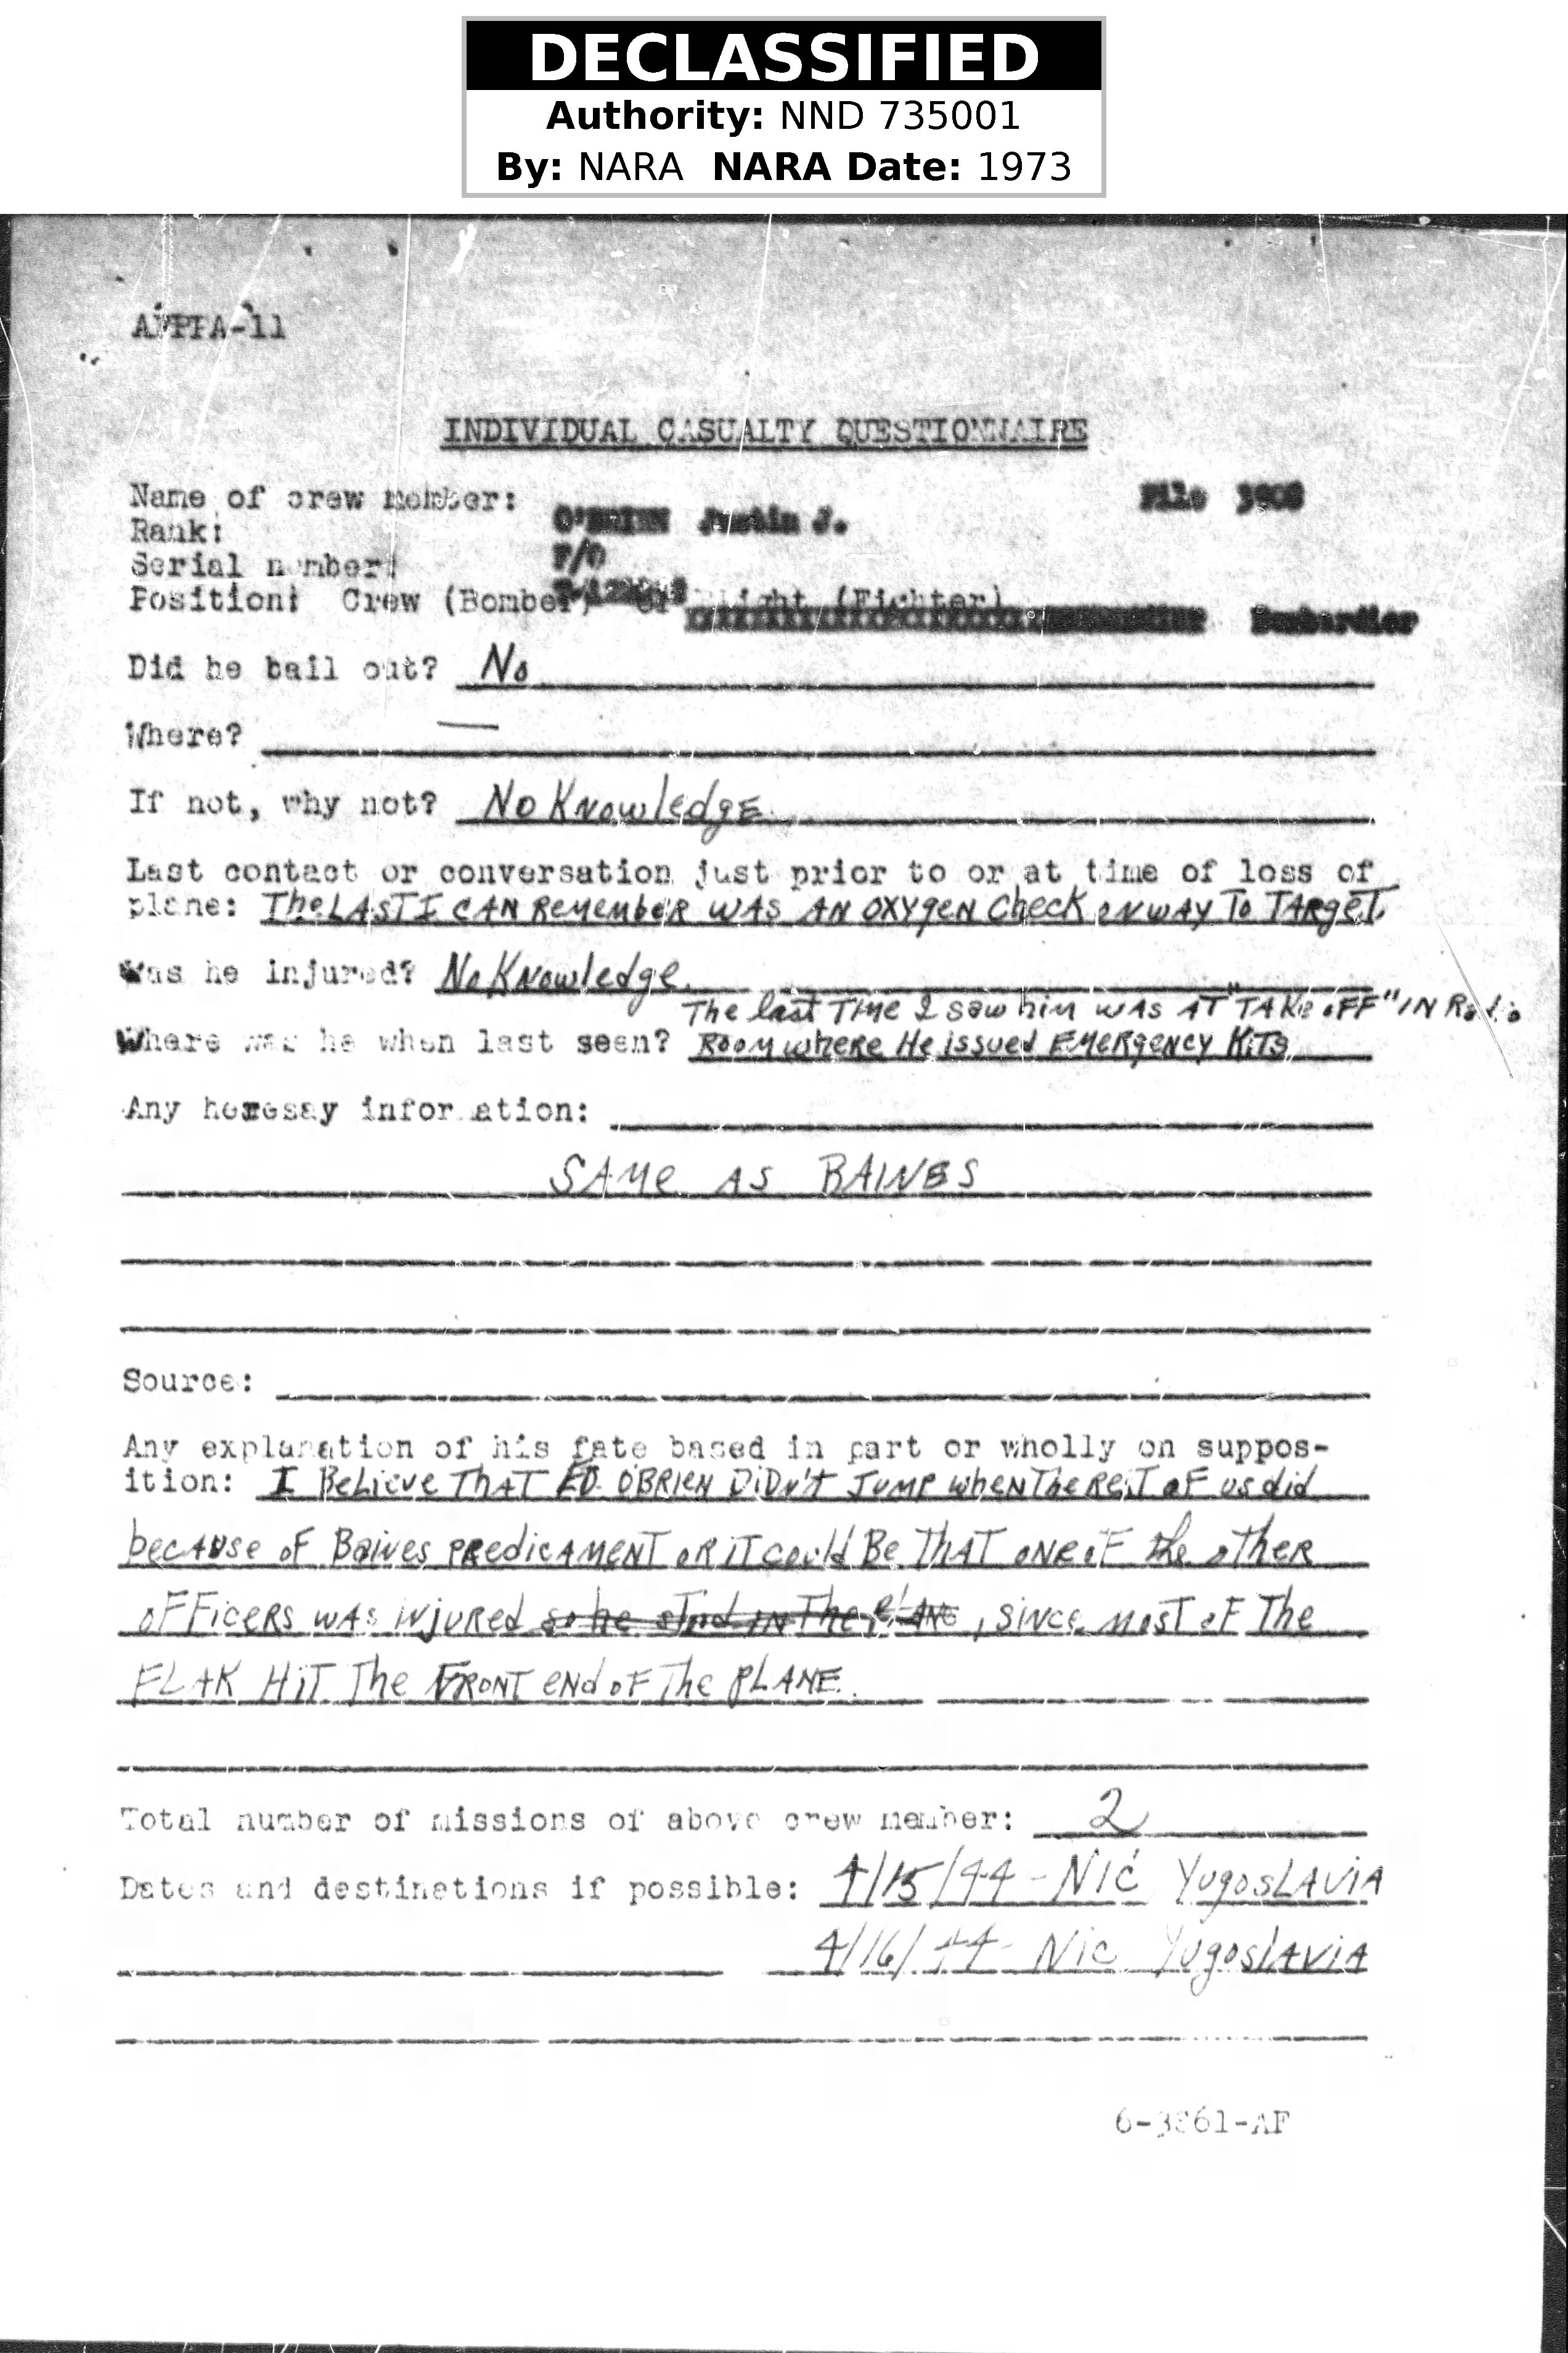 DECLASSIFIED
Authority: NND 735001
By: NARA NARA Date: 1973
AFPPA-11
INDIVIDUAL CASUALTY QUESTIONNAIRE
Name of crew member: O'BRIEN Justin J.
File
Rank: F/O
Serial number:
Position: Crew (Bomber) or Flight (Fighter) Bombardier
Did he bail out? No
Where? —
If not, why not? No Knowledge
Last contact or conversation just prior to or at time of loss of
plane: The LAST I CAN Remember WAS AN OXYgEN Check ON WAY To TARgET.
Was he injured? No Knowledge.
The last Time I saw him WAS AT "TAKE OFF" IN Radio
Where was he when last seen? Room where He issued EMERgENCY KiTs
Any heresay information:
SAMe AS BAINES
Source:
Any explanation of his fate based in part or wholly on suppos-
ition: I BeLieve THAT ED. O'BRIEN DiDN't JUMP when The REST OF us did
because oF Baines PREdicAMENT OR iT could Be THAT ONE OF the other
oFFicERS WAS iNjURed so he stod IN The PLANE, SiNCE MOST oF The
FLAK HiT The FRONT eNd oF The PLANE.
Total number of missions of above crew member: 2
Dates and destinations if possible: 4/15/44 - Nic YugosLAViA
4/16/44 - Nic YugoslAViA
6-3861-AF